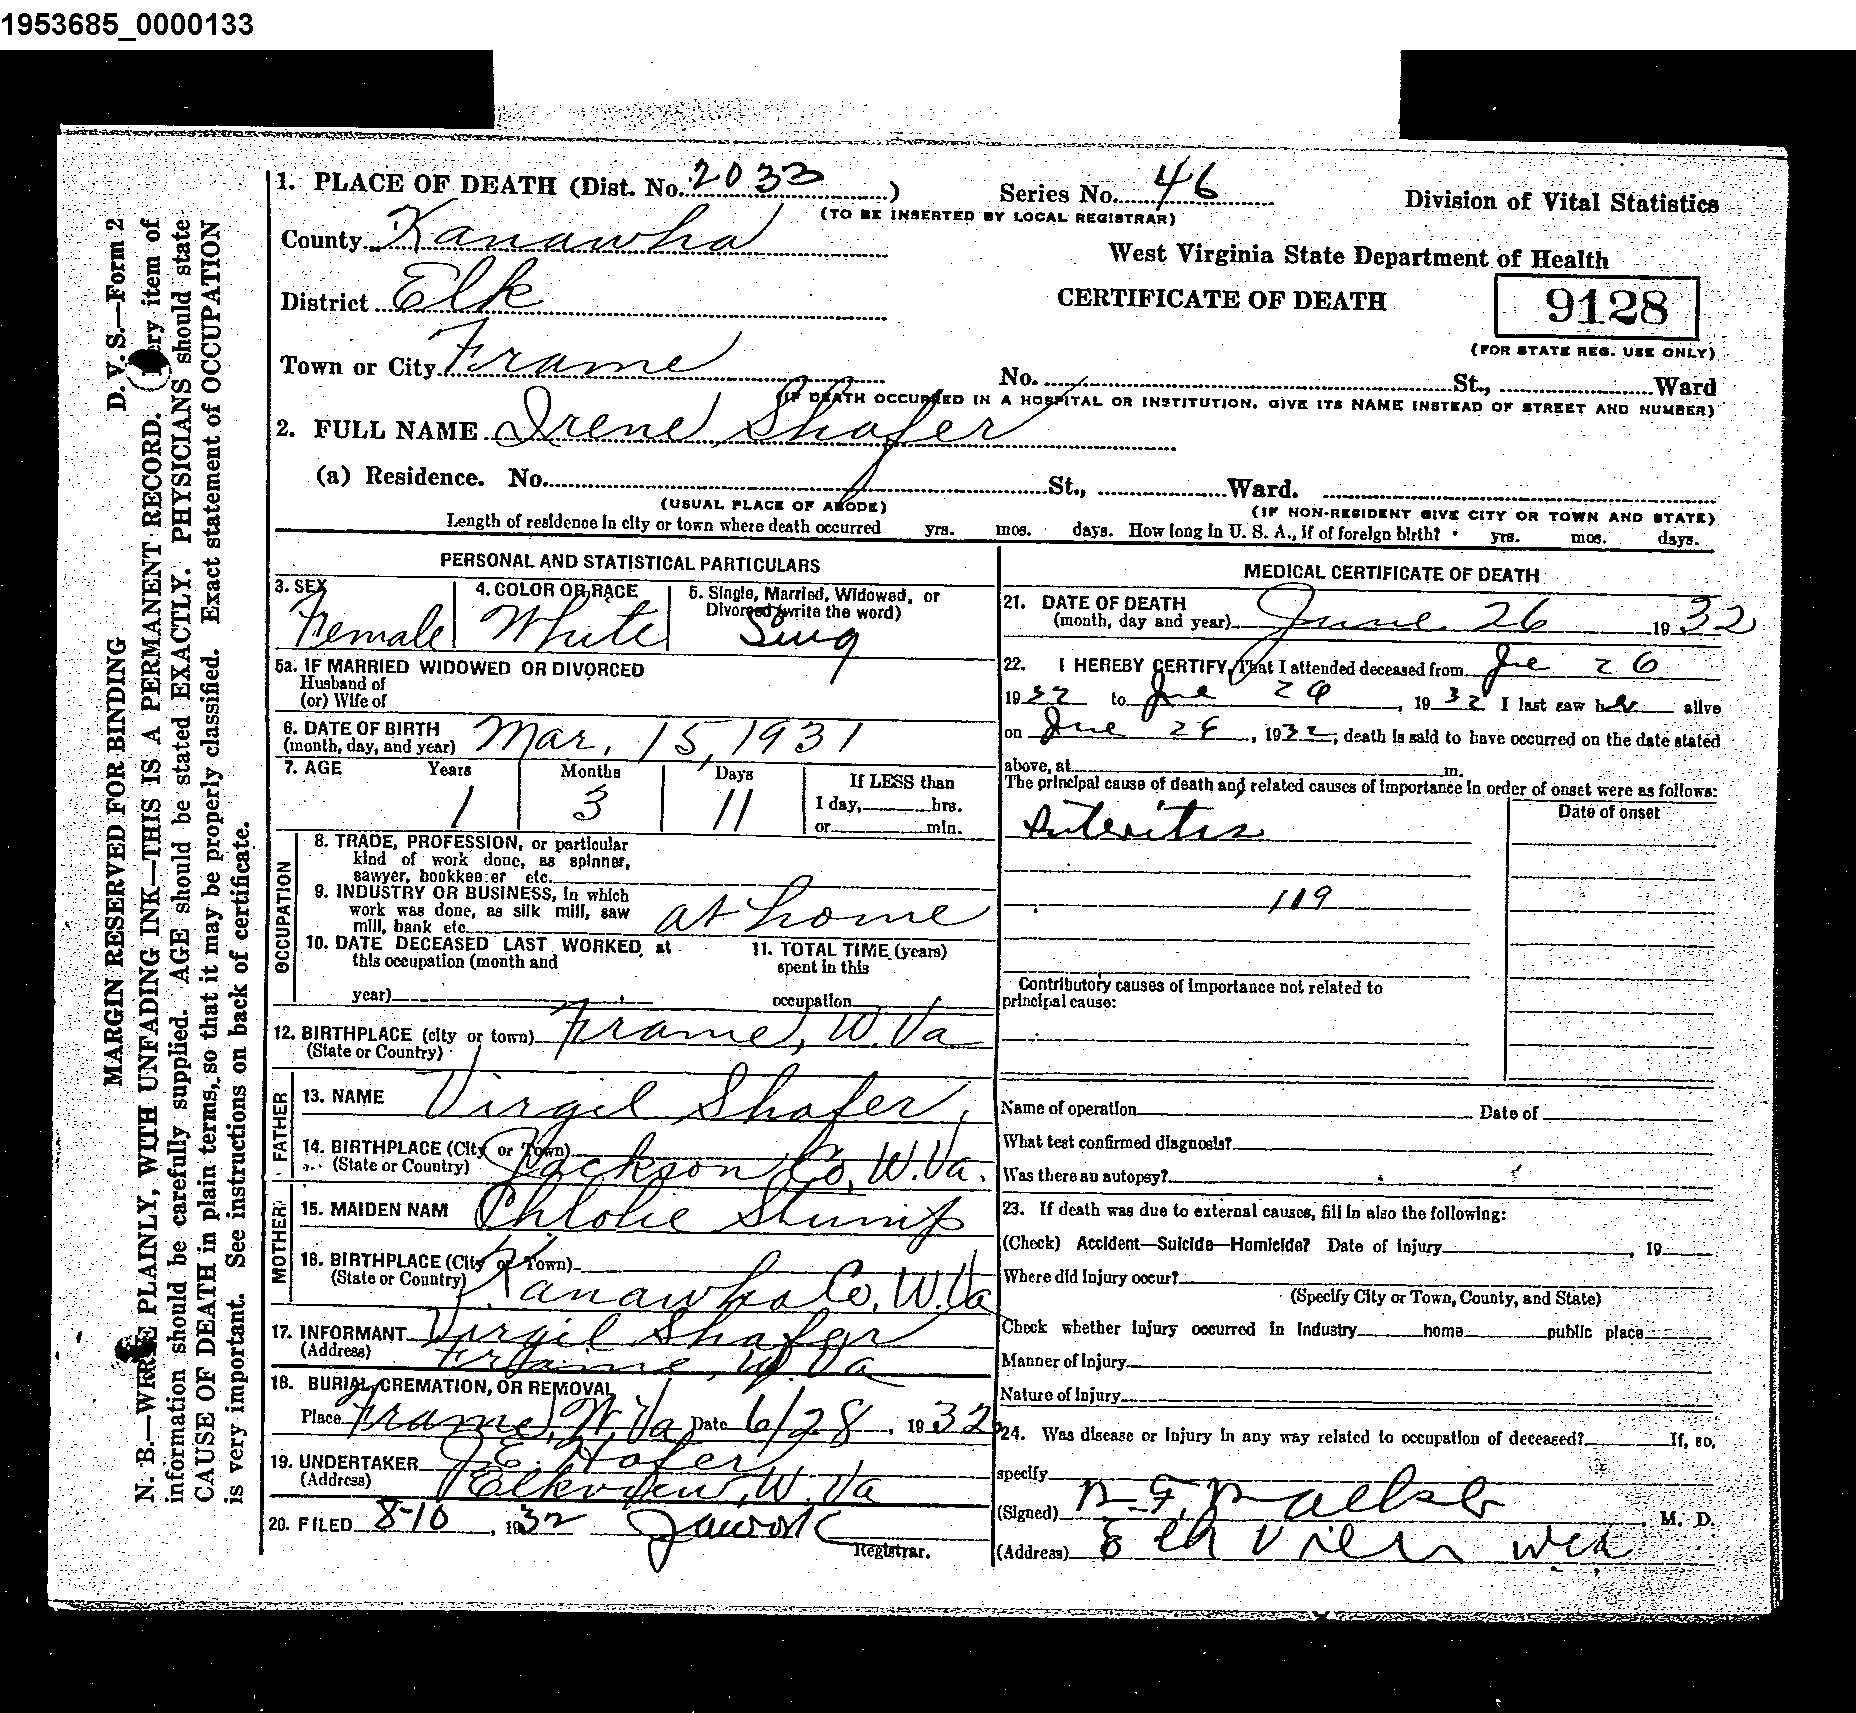 1953685_0000133
1. PLACE OF DEATH (Dist. No. 2033 ) Series No. 46 Division of Vital Statistics
(TO BE INSERTED BY LOCAL REGISTRAR)
County Kanawha West Virginia State Department of Health
District Elk CERTIFICATE OF DEATH 9128
(FOR STATE REG. USE ONLY)
Town or City Frame No. St., Ward
(IF DEATH OCCURRED IN A HOSPITAL OR INSTITUTION, GIVE ITS NAME INSTEAD OF STREET AND NUMBER)
2. FULL NAME Irene Shafer
(a) Residence. No. St., Ward.
(USUAL PLACE OF ABODE) (IF NON-RESIDENT GIVE CITY OR TOWN AND STATE)
Length of residence in city or town where death occurred yrs. mos. days. How long in U. S. A., if of foreign birth? yrs. mos. days.
PERSONAL AND STATISTICAL PARTICULARS
3. SEX 4. COLOR OR RACE 5. Single, Married, Widowed, or
Divorced (write the word)
Female White Sing
5a. IF MARRIED WIDOWED OR DIVORCED
Husband of
(or) Wife of
6. DATE OF BIRTH
(month, day, and year) Mar, 15, 1931
7. AGE Years Months Days If LESS than
1 3 11 1 day, hrs.
or min.
OCCUPATION
8. TRADE, PROFESSION, or particular
kind of work done, as spinner,
sawyer, bookkeeper etc.
9. INDUSTRY OR BUSINESS, in which
work was done, as silk mill, saw
mill, bank etc. at home
10. DATE DECEASED LAST WORKED at 11. TOTAL TIME (years)
this occupation (month and spent in this
year) occupation
12. BIRTHPLACE (city or town) Frame, W. Va
(State or Country)
FATHER
13. NAME Virgil Shafer,
14. BIRTHPLACE (City or Town)
(State or Country) Jackson Co, W. Va.
MOTHER
15. MAIDEN NAM Chlolie Stump
16. BIRTHPLACE (City or Town)
(State or Country) Kanawha Co, W. Va
17. INFORMANT Virgil Shafer
(Address) Frame, W. Va
18. BURIAL, CREMATION, OR REMOVAL
Place Frame, W, Va Date 6/28, 1932
19. UNDERTAKER J. E. Hafer
(Address) Elkview, W. Va
20. FILED 8-10, 1932
Registrar.
MEDICAL CERTIFICATE OF DEATH
21. DATE OF DEATH
(month, day and year) June 26 1932
22. I HEREBY CERTIFY, That I attended deceased from Jne 26
1932 to Jne 26, 1932 I last saw her alive
on Jne 26, 1932, death is said to have occurred on the date stated
above, at m.
The principal cause of death and related causes of importance in order of onset were as follows:
Date of onset
Enteritis
119
Contributory causes of importance not related to
principal cause:
Name of operation Date of
What test confirmed diagnosis?
Was there an autopsy?
23. If death was due to external causes, fill in also the following:
(Check) Accident—Suicide—Homicide? Date of injury , 19
Where did injury occur?
(Specify City or Town, County, and State)
Check whether injury occurred in industry home public place
Manner of Injury
Nature of Injury
24. Was disease or injury in any way related to occupation of deceased? If, so,
specify
(Signed) M. D.
(Address) Elk View
MARGIN RESERVED FOR BINDING D. V. S.—Form 2
N. B.—WRITE PLAINLY, WITH UNFADING INK—THIS IS A PERMANENT RECORD. (Every item of
information should be carefully supplied. AGE should be stated EXACTLY. PHYSICIANS should state
CAUSE OF DEATH in plain terms, so that it may be properly classified. Exact statement of OCCUPATION
is very important. See instructions on back of certificate.